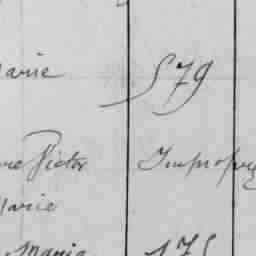 arie 579
re Victor Improprie
Marie
Marie 175